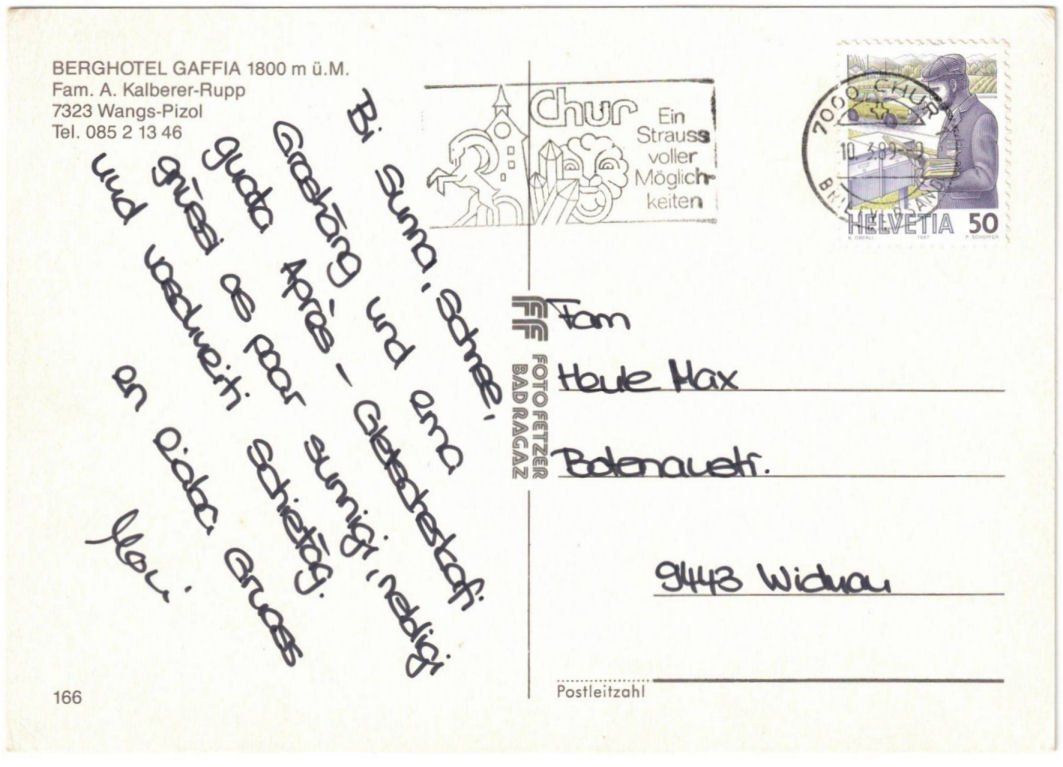 BERGHOTEL GAFFIA 1800 m ü.M.
Fam. A. Kalberer-Rupp
7323 Wangs-Pizol
Tel. 085 2 13 46
Bi Sunna, Schnee,
Grashäng und ema
guata Après-Gletscherkafi
grüssi os paar sunnigi, nebligi
und vaschneiti Schietäg.
en Liaba Gruass
166
Chur
Ein
Strauss
voller
Möglich-
keiten
7000 CHUR
10.3.89
HELVETIA 50
FF FOTO FETZER
BAD RAGAZ
Fam
Heule Max
Botenaustr.
9443 Widnau
Postleitzahl